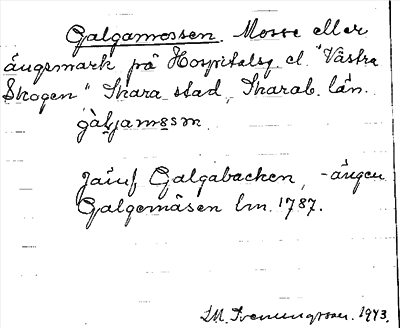 Galgamossen. Mosse eller
ängsmark på Hospitalsg. el. "Västra
Skogen" Skara stad, Skarab. län.
gàljamåsn
Jämf Galgabacken, -ängen
Galgemåsen lm. 1787.
1943.